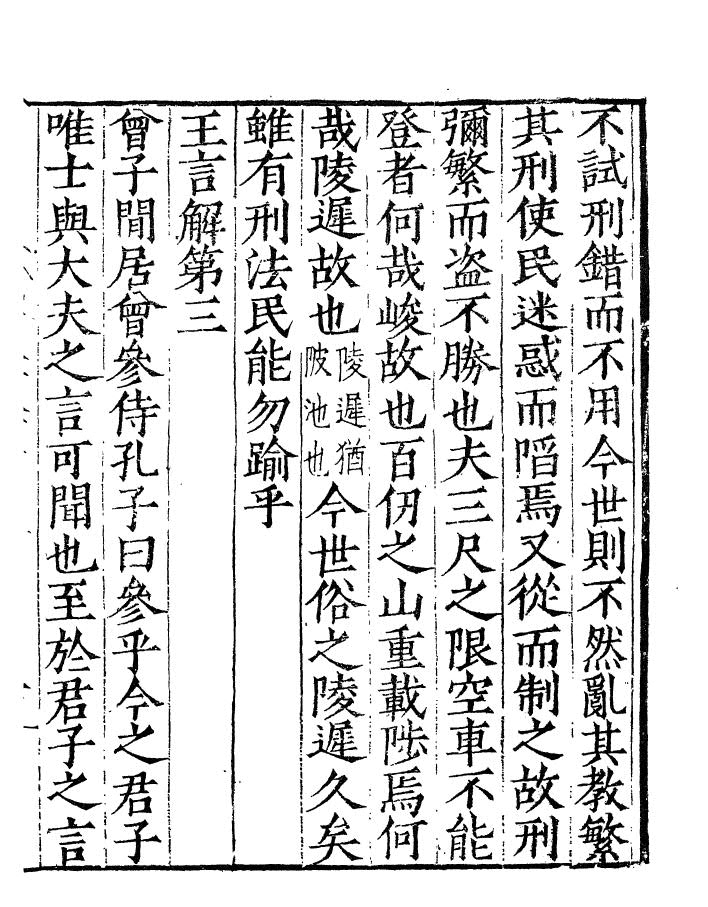 不試刑錯而不用今世則不然亂其教繁
其刑使民迷惑而陷焉又從而制之故刑
彌繁而盗不勝也夫三尺之限空車不能
登者何哉峻故也百仞之山重載陟焉何
哉陵遲故也陵遲猶陂池也今世俗之陵遲久矣
雖有刑法民能勿踰乎
王言解第三
曾子閒居曾參侍孔子曰參乎今之君子
唯士與大夫之言可聞也至於君子之言